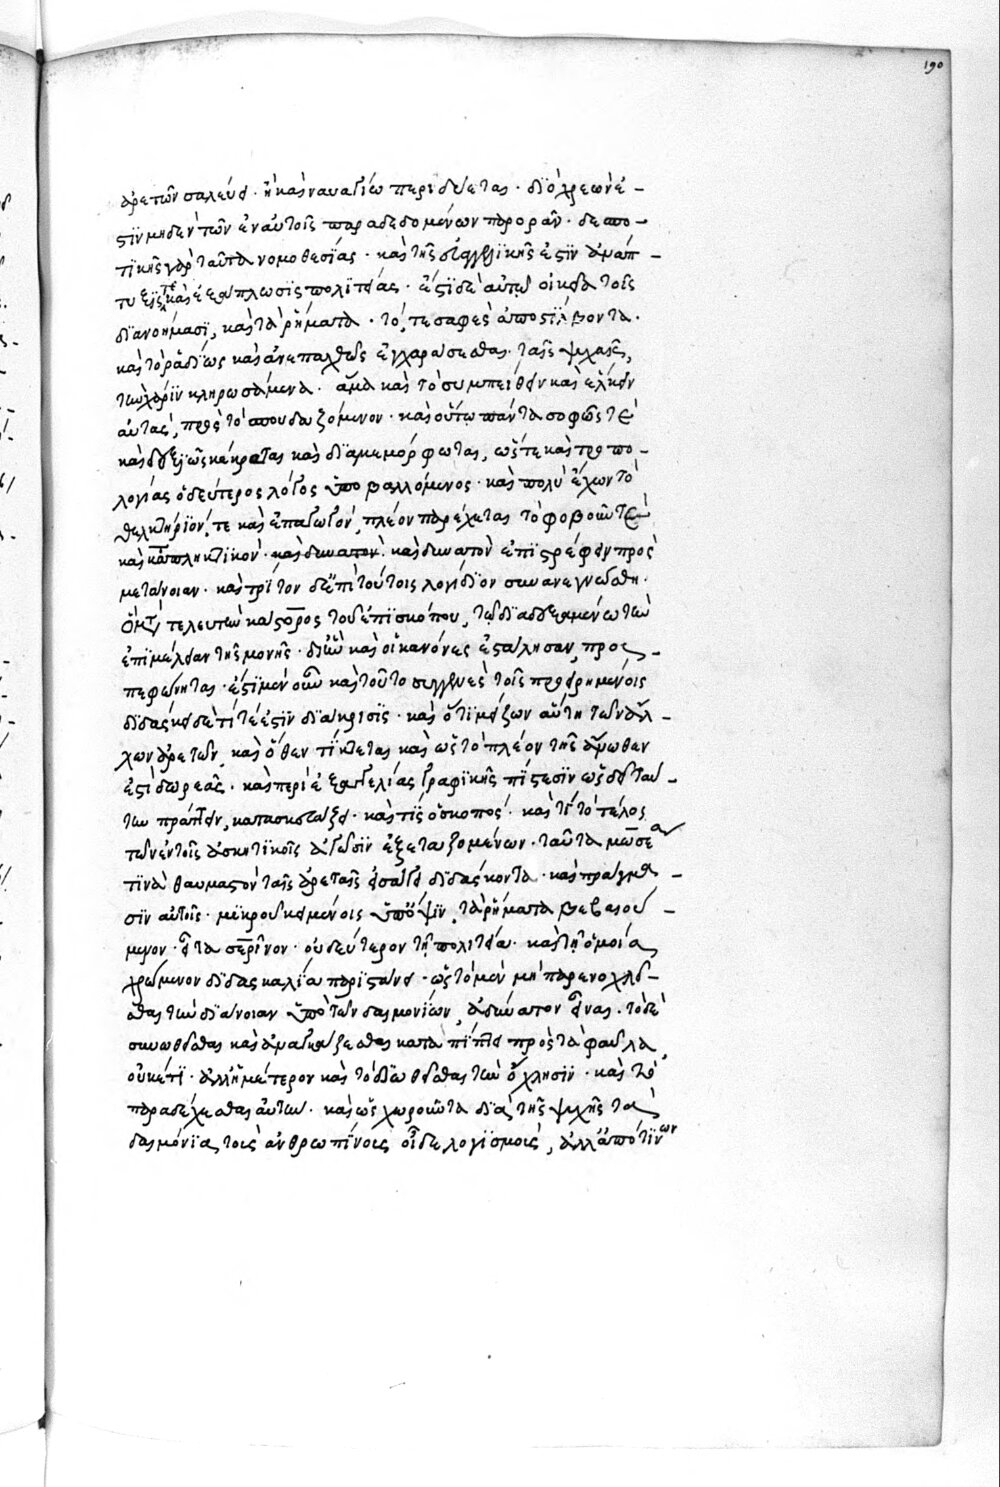 190
ἀρετῶν σαλεύει· ἢ καὶ ναυαγίῳ περιδεῖται· διὸ χρεών ἐ-
στιν μηδὲν τῶν ἐν αὐτοῖς παραδεδομένων παρορᾶν· δεσπο-
τικῆς γὰρ ταῦτα νομοθεσίας· καὶ τῆς εὐαγγελικῆς ἐστιν ἀνάπ-
τυξις τὲ καὶ ἐξάπλωσις πολιτείας· ἔστι δὲ αὐτῶ οἰκεῖα τοῖς
διανοήμασι, καὶ τὰ ῥήματα· τό, τε σαφὲς ἀποστίλβοντα·
καὶ τὸ ῥαδίως καὶ ἀνεπαχθῶς ἐγχαράσσεσθαι ταῖς ψυχαῖς,
τὴν χάριν κληρωσάμενα· ἅμα καὶ τὸ συμπείθειν καὶ ἕλκειν
αὐτὰς, πρὸς τὸ σπουδαζόμενον· καὶ οὕτω πάντα σοφῶς τὲ
καὶ δεξιῶς κέκραται καὶ διαμεμόρφωται, ὥστε καὶ προπο-
λογίας ὁ δεύτερος λόγος ὑποβαλλόμενος· καὶ πολὺ ἔχων τὸ
θελκτήριόν, τε καὶ ἐπαγωγόν, πλέον παρέχεται τὸ φοβοῦν τὲ
καὶ καταπληκτικόν· καὶ δυνατὸν ἐπιστρέφειν πρὸς
μετάνοιαν· καὶ τρίτον δὲ ἐπὶ τούτοις λογίδιον συνανεγνώσθη·
ὃ μετὰ τελευτὴν κάστορος τοῦ ἐπισκόπου, τῶ διαδεξαμένω τὴν
ἐπιμέλειαν τῆς μονῆς· δι' οὗ καὶ οἱ κανόνες ἐστάλησαν, προσ-
πεφώνηται· ἔστι μὲν οὖν καὶ τοῦτο συγγενὲς τοῖς προειρημένοις
διδάσκει δὲ τί τέ ἐστιν διάκρισις· καὶ ὅτι μείζων αὕτη τῶν ἄλ-
λων ἀρετῶν, καὶ ὅθεν τίκτεται καὶ ὡς τὸ πλέον τῆς ἄνωθεν
ἐστὶ δωρεᾶς· καὶ περὶ ἐξαγγελίας γραφικῆς πίστεσιν ὡς δεῖ ταύ-
την πράττειν, κατασκευάζει· καὶ τίς ὁ σκοπός· καὶ τί τὸ τέλος
τῶν ἐν τοῖς ἀσκητικοῖς ἀγῶσιν ἐξεταζομένων· ταῦτα μωσέα
τινὰ θαυμαστὸν ταῖς ἀρεταῖς εἰσάγει διδάσκοντα· καὶ πράγμα-
σιν αὐτοῖς· μικροῦ κειμένοις ὑπόψιν, τὰ ῥήματα βεβαιού-
μενον· εἶτα σερῖνον· οὐ δεύτερον τῆ πολιτεία· καὶ τῆ ὁμοία
χρώμενον διδασκαλία παρίστησι· ὡς τὸ μὲν μὴ παρενοχλεῖ-
σθαι τὴν διάνοιαν ὑπὸ τῶν δαιμονίων, ἀδύνατον εἶναι· τὸ δὲ
συνωθεῖσθαι καὶ ἀναγκάζεσθαι καταπίπτειν πρὸς τὰ φαῦλα,
οὐκέτι· ἀλλ' ἡμέτερον καὶ τὸ διωθεῖσθαι τὴν ὄχλησιν· καὶ τὸ
παραδέχεσθαι αὐτήν· καὶ ὡς χωροῦντα διὰ τῆς ψυχῆς τὰ
δαιμόνια τοὺς ἀνθρωπίνους οἶδε λογισμούς, ἀλλ' ἀπό τινων